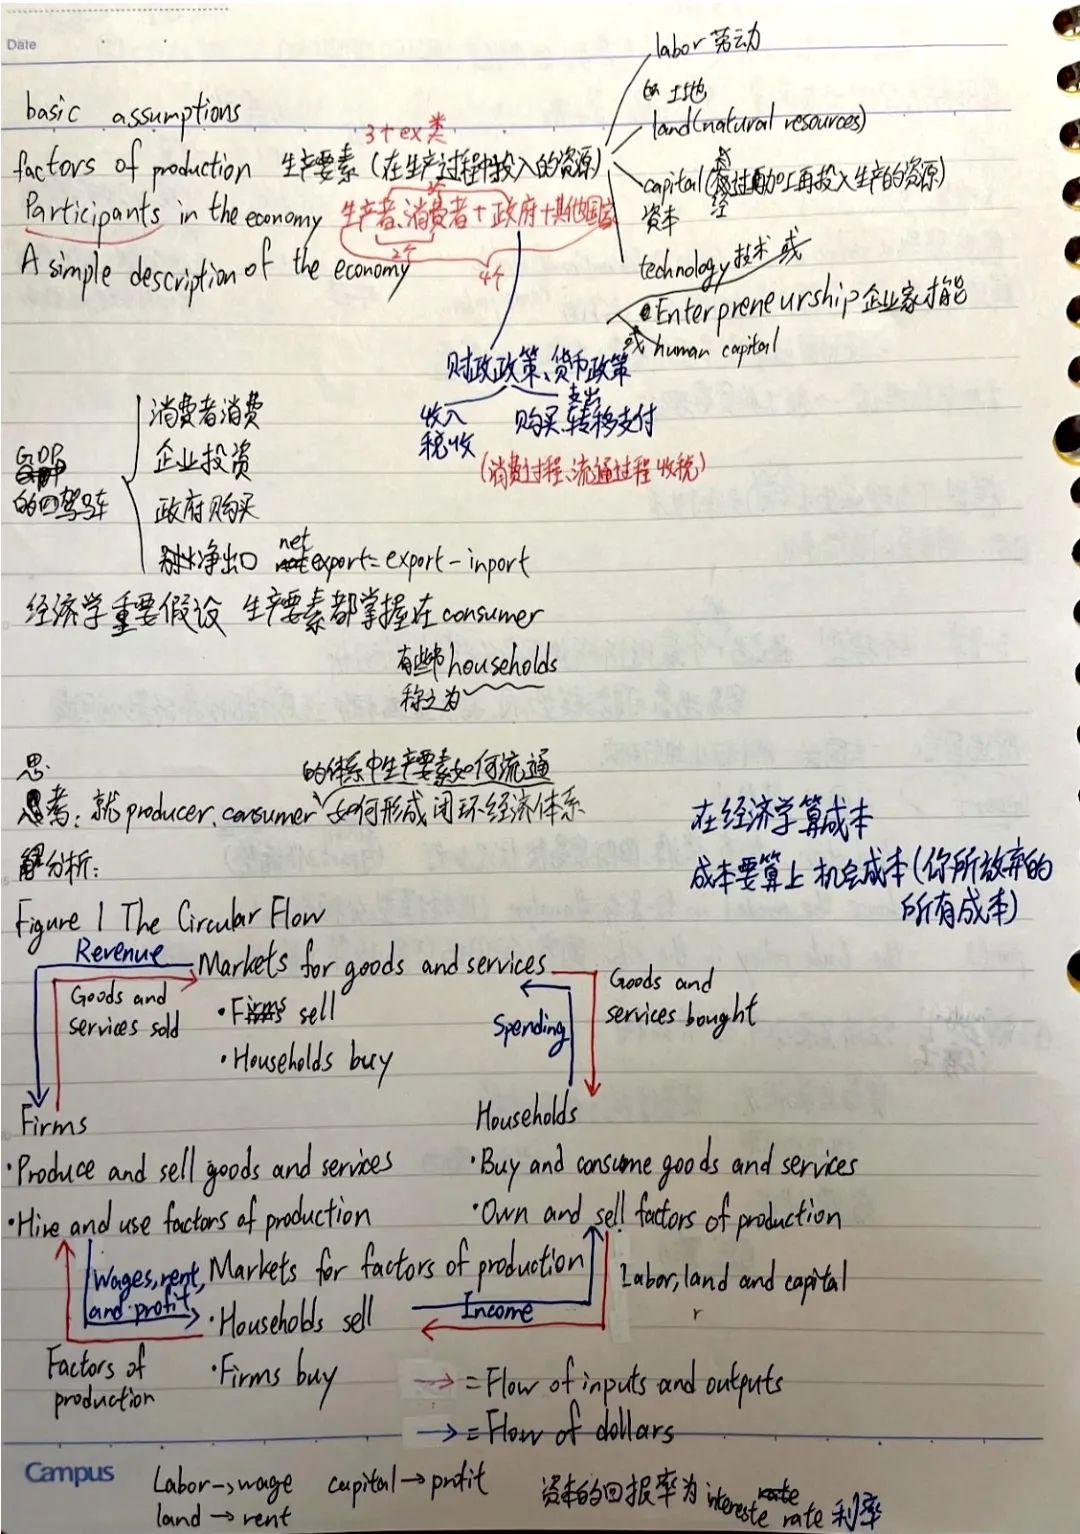 Date
labor 劳动
土地
basic assumptions
land(natural resources)
3+ex类
factors of production 生产要素(在生产过程中投入的资源)
capital(经过加工再投入生产的资源)
资本
Participants in the economy 生产者、消费者+政府+其他国家
2个
4个
A simple description of the economy
technology技术 或
Enterpreneurship企业家才能
或 human capital
财政政策、货币政策
收入
支出
税收
购买、转移支付
(消费过程、流通过程收税)
GDP
的四驾马车
消费者消费
企业投资
政府购买
净出口 net export=export-inport
经济学重要假设 生产要素都掌握在consumer
有些书households
称之为
思
的体系中生产要素如何流通
考:就producer、consumer如何形成闭环经济体系
分析:
在经济学算成本
成本要算上机会成本(你所放弃的
所有成本)
Figure 1 The Circular Flow
Revenue
Markets for goods and services
Goods and
services sold
·Firms sell
·Households buy
Spending
Goods and
services bought
Firms
Households
·Produce and sell goods and services
·Buy and consume goods and services
·Hire and use factors of production
·Own and sell factors of production
Wages, rent,
and profit
Markets for factors of production
Labor, land and capital
·Households sell
Income
Factors of
production
·Firms buy
→=Flow of inputs and outputs
→=Flow of dollars
Campus
Labor→wage capital→profit
资本的回报率为intereste rate 利率
land→rent